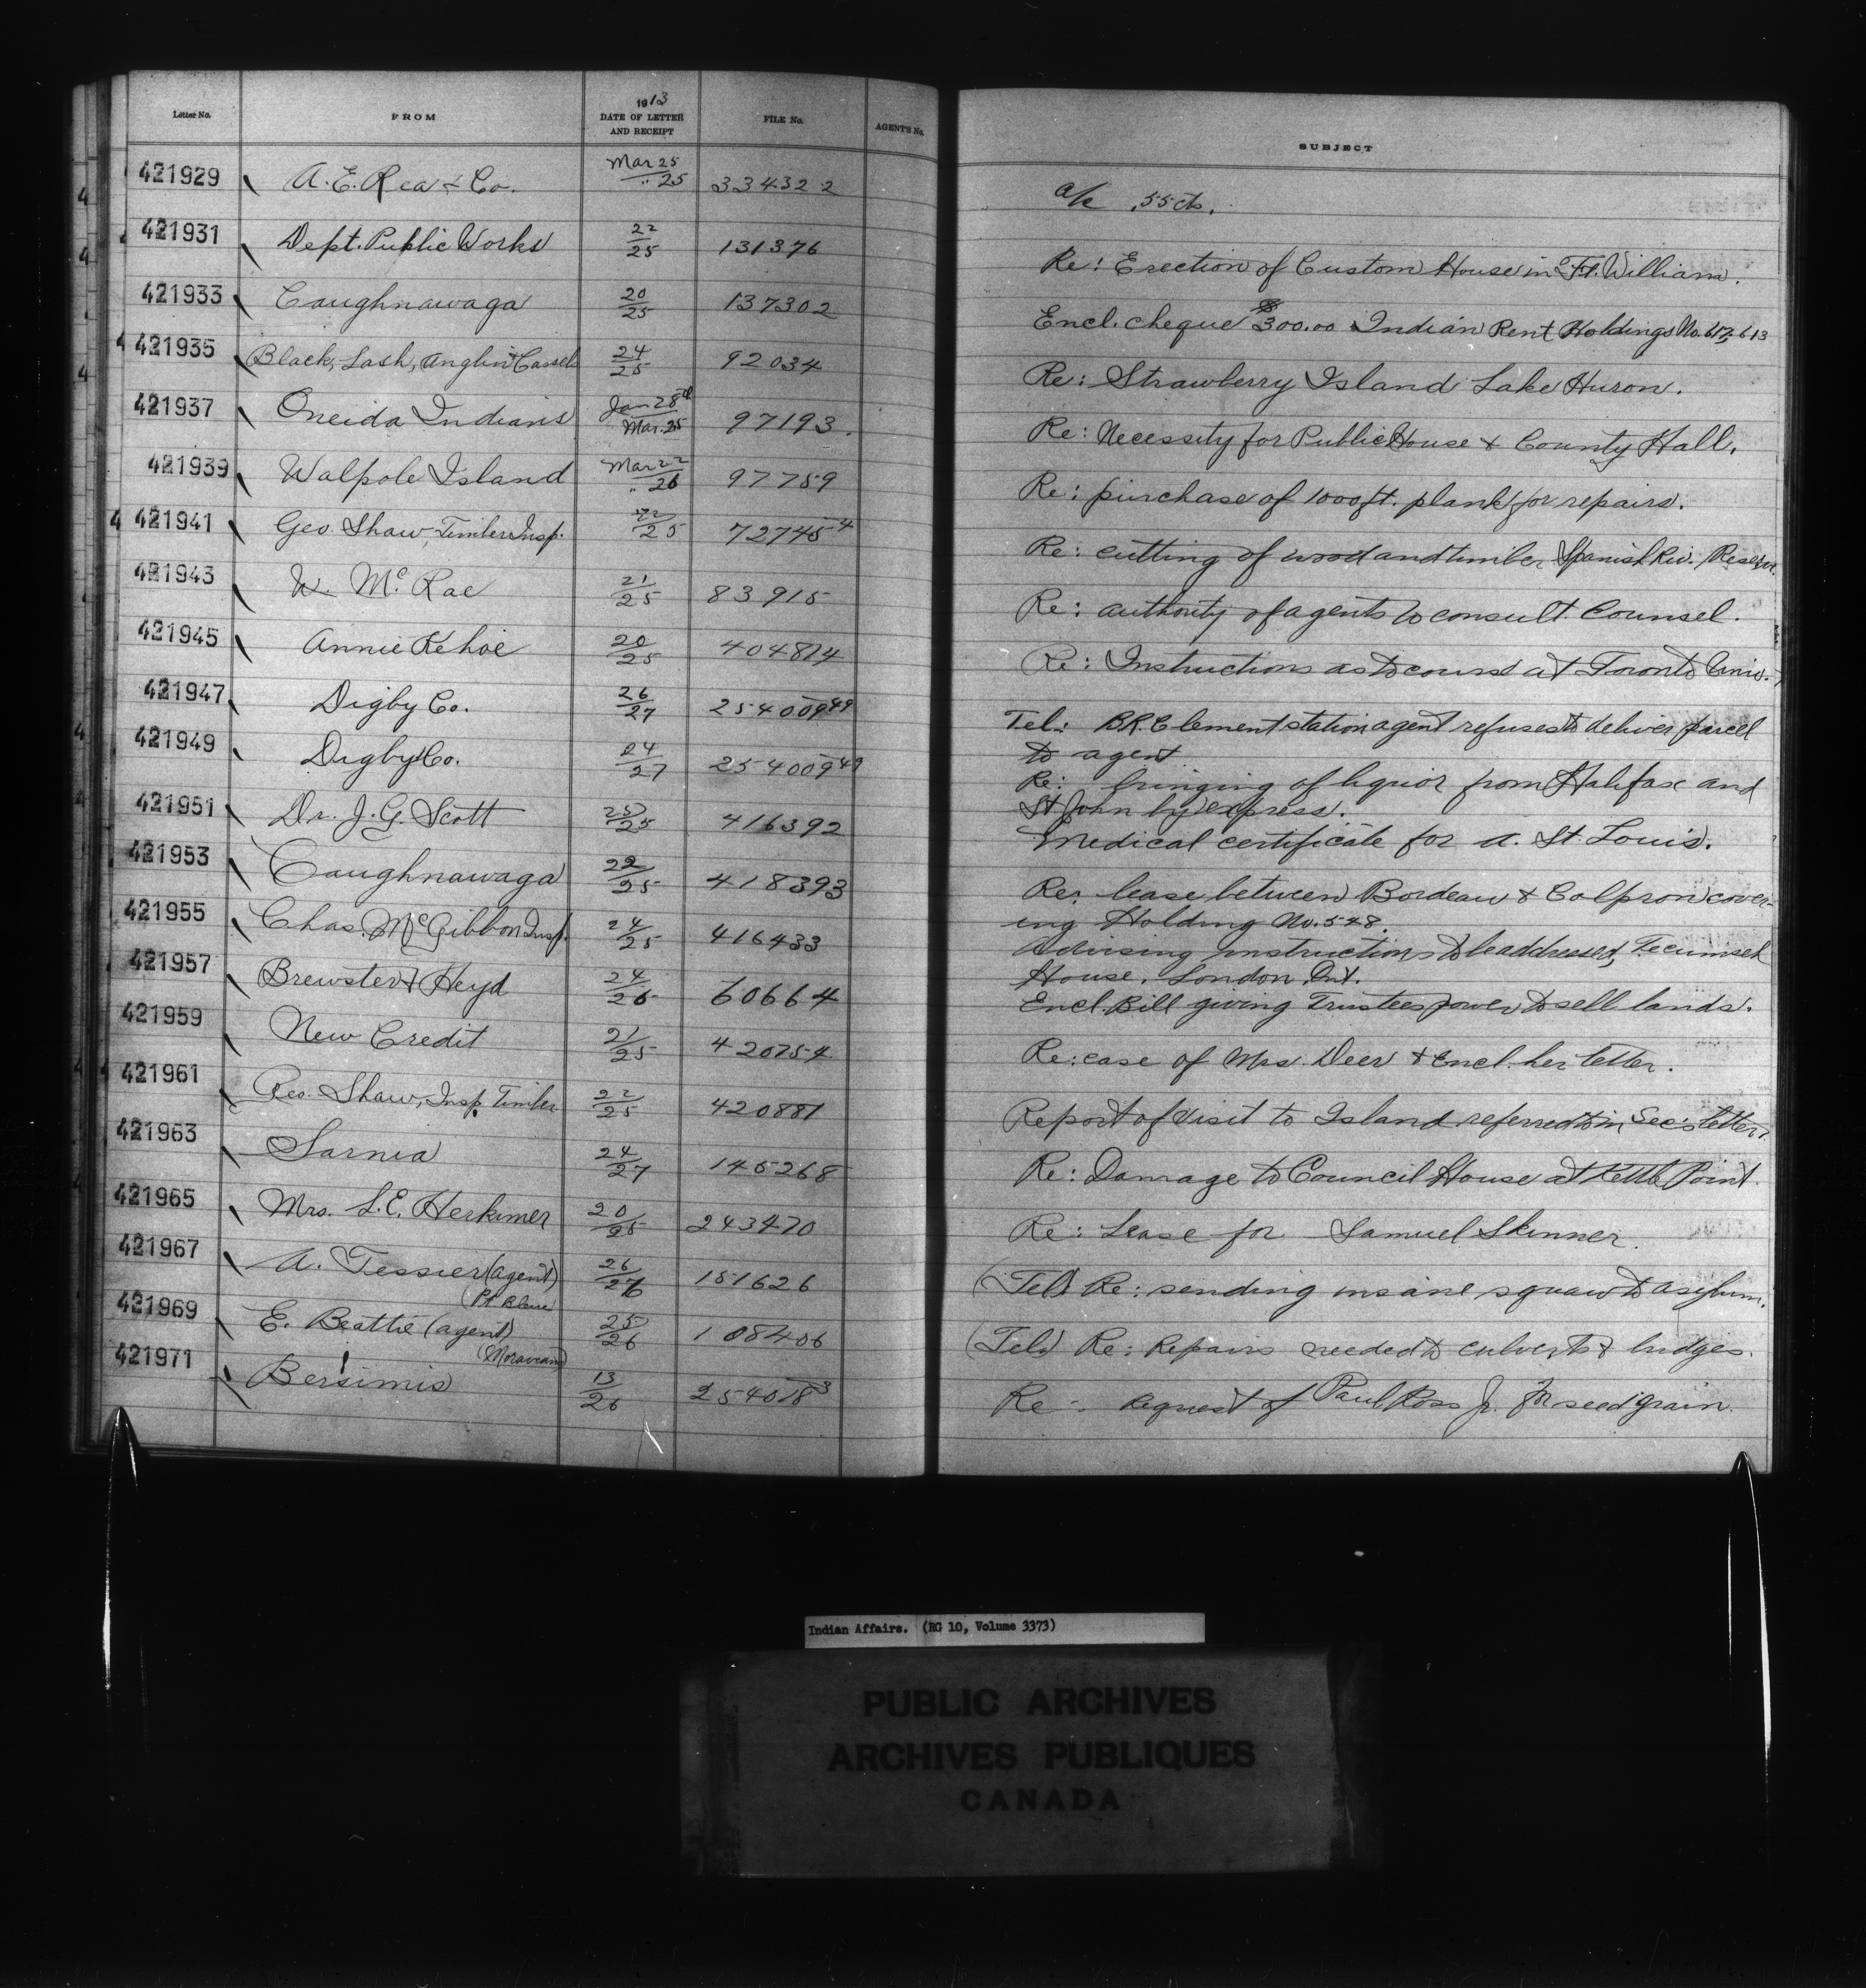 Letter No. FROM 1913 DATE OF LETTER AND RECEIPT FILE No. AGENT'S No. SUBJECT
421929 A. E. Rea & Co. Mar 25 / " 25 334322 a/c .55 cts.
421931 Dept. Public Works 22/25 131376 Re: Erection of Custom House in Ft. William.
421933 Caughnawaga 20/25 137302 Encl. cheque $300.00 Indian Rent Holdings No. 613
421935 Black, Lash, Anglin & Cassels 24/25 92034 Re: Strawberry Island Lake Huron.
421937 Oneida Indians Jan 28th / Mar. 25 97193. Re: Necessity for Public House & County Hall.
421939 Walpole Island Mar 22 / " 26 97759 Re: purchase of 1000 ft. plank for repairs.
421941 Geo. Shaw, Timber Insp. 22/25 72745-4 Re: cutting of wood and timber Spanish Riv. Reserve.
421943 W. McRae 21/25 83915 Re: authority of agents to consult Counsel.
421945 Annie Kehoe 20/25 404814 Re: Instructions as to course at Toronto Univ.
421947 Digby Co. 26/27 254009-49 Tel: B.R. Clement station agent refuses to deliver parcel
to agent
421949 Digby Co. 24/27 254009-49 Re: bringing of liquor from Halifax and
St John by express.
421951 Dr. J. G. Scott 25/25 416392 Medical certificate for A. St. Louis.
421953 Caughnawaga 22/25 418393 Re: lease between Bordeau & Colpron cover-
ing Holding No. 548.
421955 Chas. McGibbon Insp. 24/25 416433 Advising instructions to be addressed, Tecumseh
House, London Ont.
421957 Brewster & Heyd 24/26 60664 Encl. Bill giving Trustees power to sell lands.
421959 New Credit 21/25 420754 Re: case of Mrs. Deer & encl. her letter.
421961 Geo. Shaw, Insp. Timber 22/25 420881 Report of visit to Island referred to in Sec's letter.
421963 Sarnia 24/27 145268 Re: Damage to Council House at Kettle Point.
421965 Mrs. L. E. Herkimer 20/25 243470 Re: Lease for Samuel Skinner.
421967 A. Tessier (agent) 26/26 151626 (Tel) Re: sending insane squaw to asylum.
(Pt Bleue
421969 E. Beattie (agent) 25/26 108406 (Tel.) Re: Repairs needed to culverts & bridges.
(Moravian)
421971 Bersimis 13/26 254018-3 Re: request of Paul Ross Jr. for seed grain.
Indian Affairs. (RG 10, Volume 3373)
PUBLIC ARCHIVES
ARCHIVES PUBLIQUES
CANADA